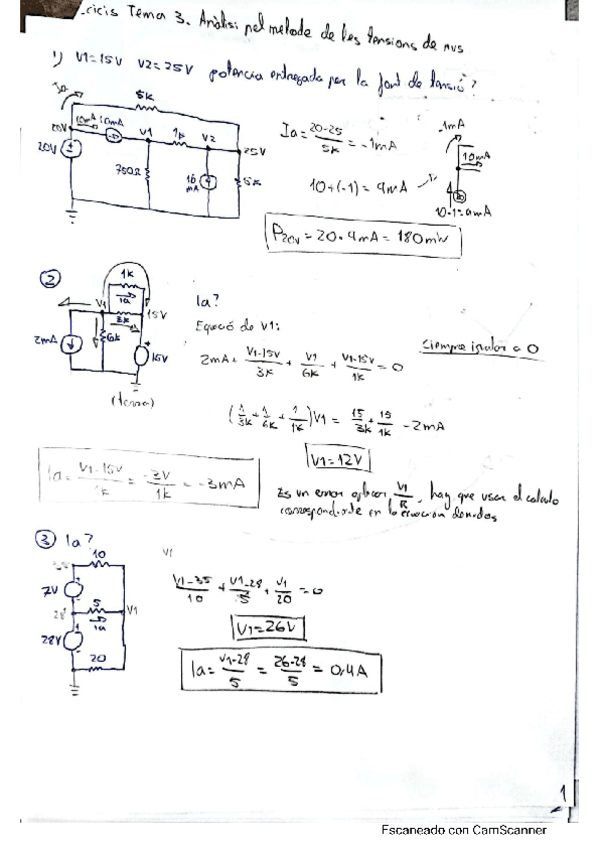 Tema 3. Anàlisi pel mètode de les tensions de nus
1) V1=15V V2=25V potència entregada per la font de tensió?
Ia
5k
20V
10mA
10mA
V1
1k
V2
25V
20V
750Ω
5k
Ia = 20-25 / 5k = -1mA
10+(-1) = 9mA
-1mA
10mA
10-1=9mA
P20V = 20·9mA = 180mW
②
1k
Ia
V1
3k
15V
2mA
6k
15V
(terra)
Ia?
Equació de V1:
Siempre igualar a 0
2mA + V1-15V / 3k + V1 / 6k + V1-15V / 1k = 0
(1/3k + 1/6k + 1/1k) V1 = 15/3k + 15/1k - 2mA
V1=12V
Ia = V1-15V / 1k = -3V / 1k = -3mA
Es un error aplicar V1/R, hay que usar el calculo
correspondiente en la ecuacion de nudos
③ Ia?
V1
10
7V
28
5
V1
Ia
28V
20
V1-35 / 10 + V1-28 / 5 + V1 / 20 = 0
V1=26V
Ia = V1-28 / 5 = 26-28 / 5 = 0,4A
1
Escaneado con CamScanner